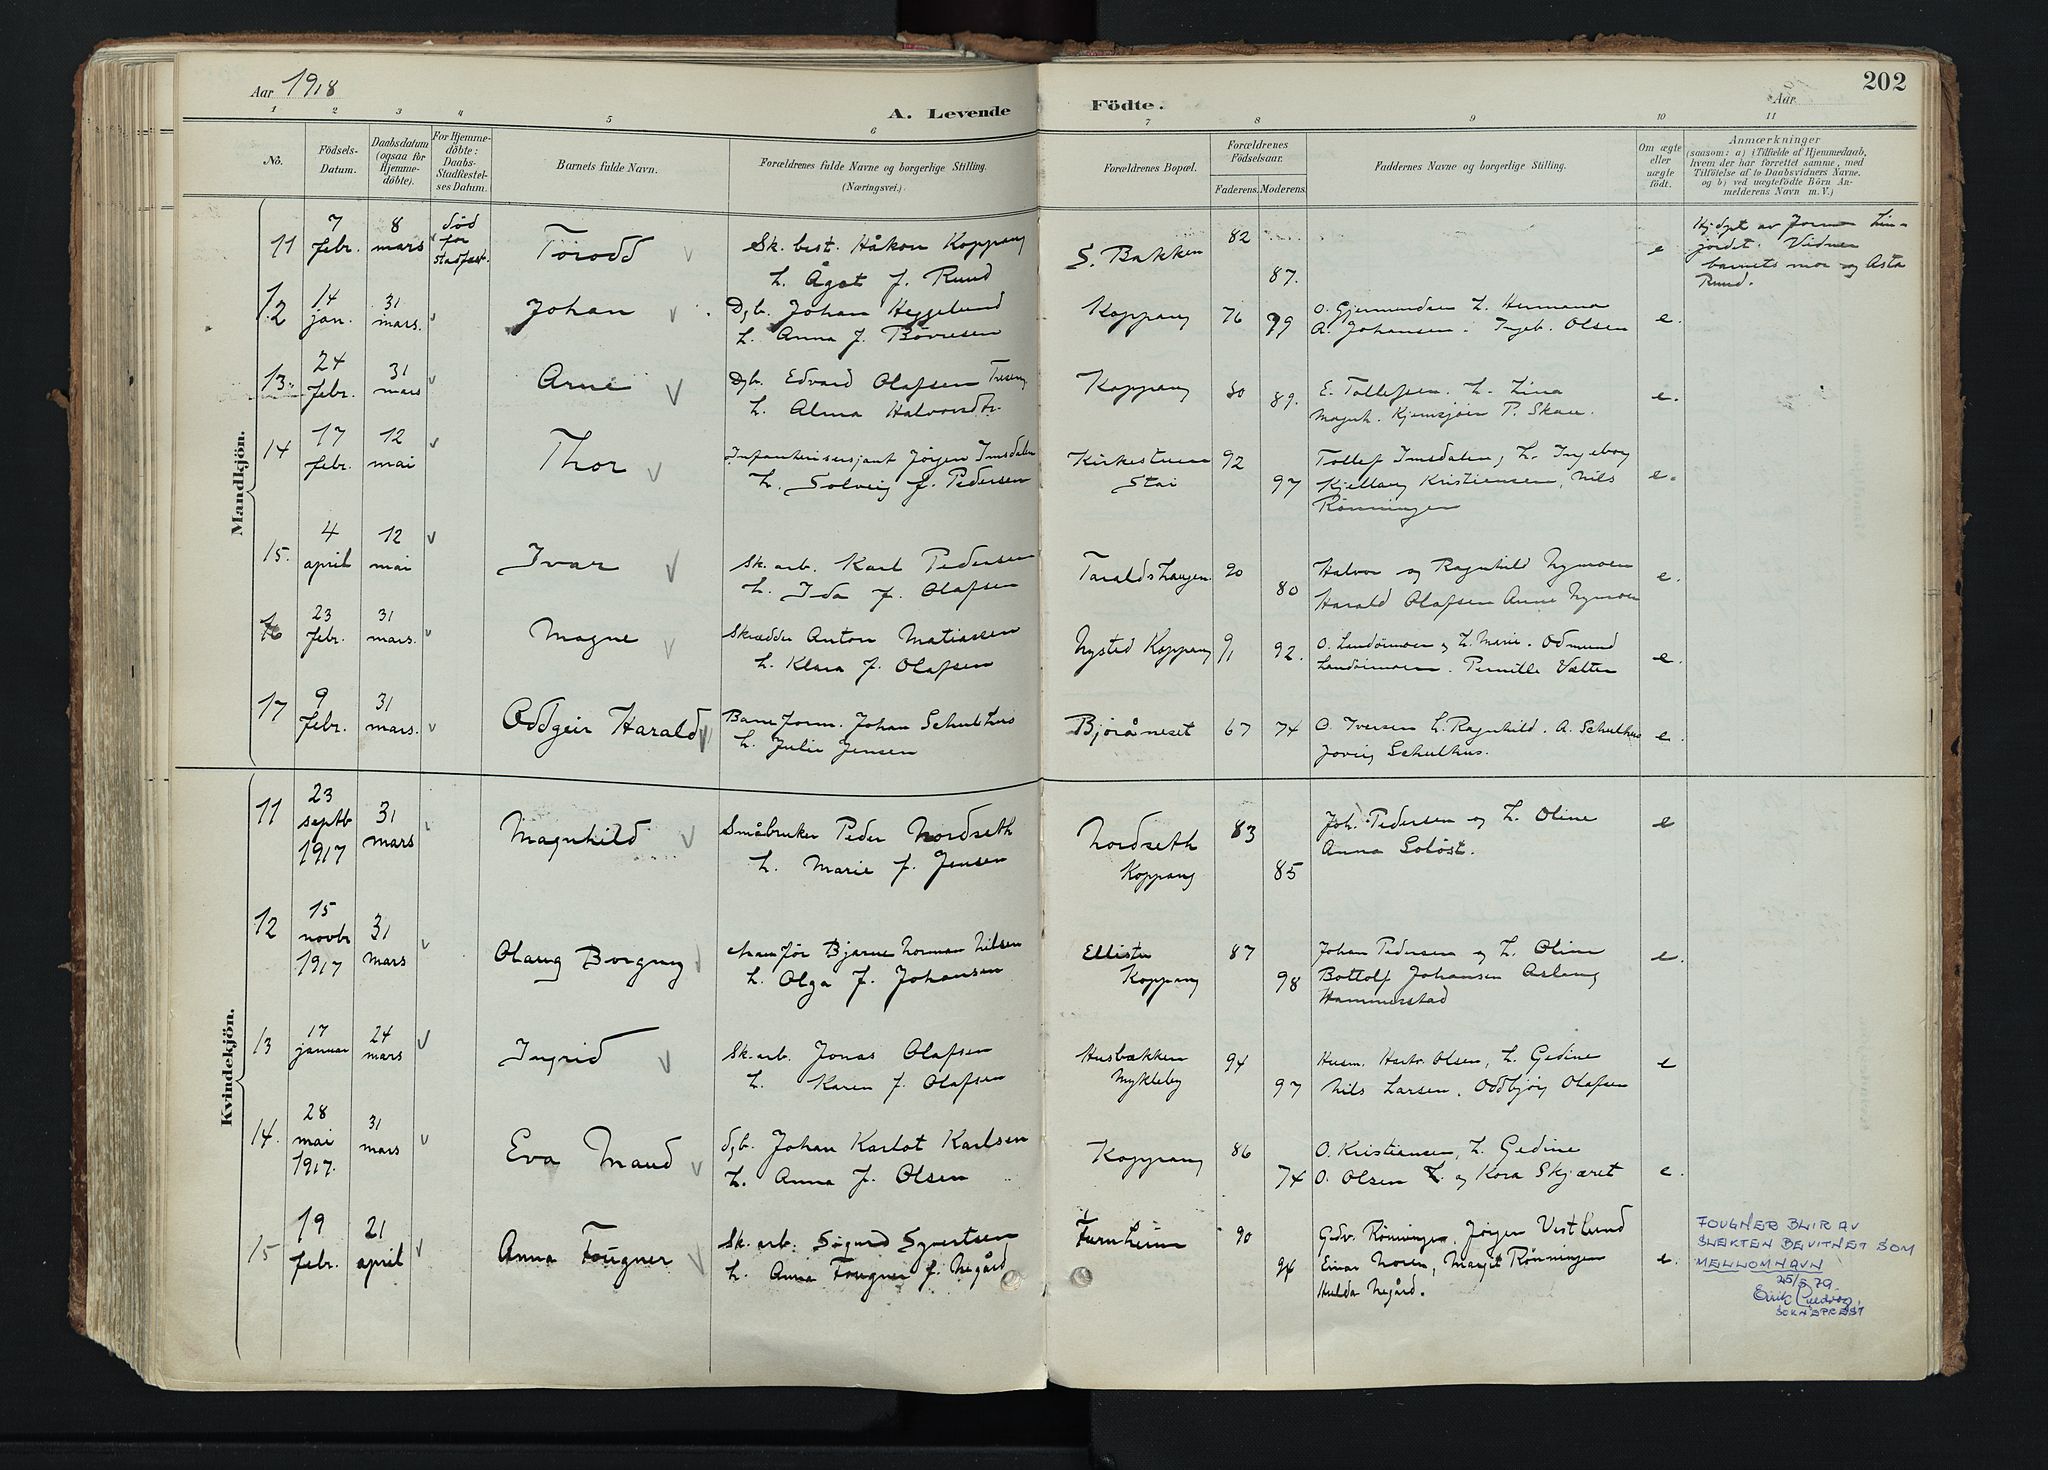 Aar 1918
A. Levende
Födte.
Aar
202
1 2 3 4 5 6 7 8 9 10 11
No.
Födsels-
Datum.
Daabsdatum
(ogsaa for
Hjemme-
döbte).
For Hjemme-
döbte:
Daabs-
Stadfæstel-
ses Datum.
Barnets fulde Navn.
Forældrenes fulde Navne og borgerlige Stilling.
(Næringsvei).
Forældrenes Bopæl.
Forældrenes
Födselsaar.
Faderens. Moderens.
Faddernes Navne og borgerlige Stilling.
Om ægte
eller
uægte
födt.
Anmærkninger
(saasom: a) i Tilfælde af Hjemmedaab,
hvem der har forrettet samme, med
Tilföielse af to Daabsvidners Navne,
og b) ved uægtefödte Börn An-
melderens Navn m. V.)
Mandkjön.
11 7 febr. 8 mars død for stadfæst. Torodd
Sk. best. Håkon Koppang
h. Ågot f. Ruud
S. Bakken 82 87. e
Hj.døpt av
Vidner
barnets mor og Asta
Ruud.
12 14 jan. 31 mars. Johan
Dgb. Johan Heggelund
h. Anna f. Børresen
Koppang 76 79
O. Gjermundsen h. Hermana
A. Johansen. Ingeb. Olsen e.
13. 24 febr. 31 mars Arne
Dgb. Edvard Olafsen
h. Alma Halvorsdtr.
Koppang 80 89.
E. Tollefsen. h. Lina
Magnh. Kjemsjøen P. Skau. e.
14 17 febr. 12 mai Thor
Infanterisersjant Jørgen Imsdalen
h. Solveig f. Pedersen
Kirkestuen
Stai 92 97
Tollef Imsdalen, h. Ingeborg
Kjellaug Kristiansen, Nils
Rønningen e.
15. 4 april 12 mai Ivar
Sk. arb. Karl Pedersen
h. Ida f. Olafsen
Taraldshaugen 90 80
Halvor og Ragnhild Nymoen
Harald Olafsen Anne Nymoen e.
16 23 febr. 31 mars. Magne
Skrædder Anton Matiassen
h. Klara f. Olafsen
Nysted Koppang 91 92.
O. Landðimoen og h. Marie. Odmund
Landðimoen. Pernille Vælten e.
17 9 febr. 31 mars. Oddgeir Harald
Baneform. Johan Schulhus
h. Julie Jensen
Bjøråneset 67 74
O. Iversen h. Ragnhild. A. Schulhus
Jovig Schulhus. e.
Kvindekjön.
11 23 septb 1917 31 mars Magnhild
Småbruker Peder Nordseth
h. Marie f. Jensen
Nordseth
Koppang 83 85
Joh. Pedersen og h. Oline
Anna Soløst. e
12 15 novbr 1917 31 mars Olaug Borgny
Bjarne Norman Nilsen
h. Olga f. Johansen
Ellistu
Koppang 87 98
Johan Pedersen og h. Oline
Bottolf Johansen Aslaug
Hammerstad e.
13 17 januar 24 mars Ingrid
Sk. arb. Jonas Olafsen
h. Karen f. Olafsen
Husbækken
Mykleby 94 97
Husm. Hartv. Olsen, h. Gedine
Nils Larsen, Oddbjørg Olafsen e
14. 28 mai 1917. 31 mars Eva Maud
dgb. Johan Karlot Karlsen
h. Anna f. Olsen
Koppang 86 74
O. Kristiansen, h. Gedine
O. Olsen h. og Kora Skjæret e.
15 19 febr. 21 april Anna Fougner
Sk. arb. Sigurd Syvertsen
h. Anna Fougner f. Negård
Furuheim 90 94
Gudv. Rønningen. Jørgen Vestlund
Einar Noren, Margit Rønningen
Hulda Negård. e.
FOUGNER BLIR AV
SLEKTEN BEVITNET SOM
MELLOMNAVN
25/5 79.
SOKNEPREST